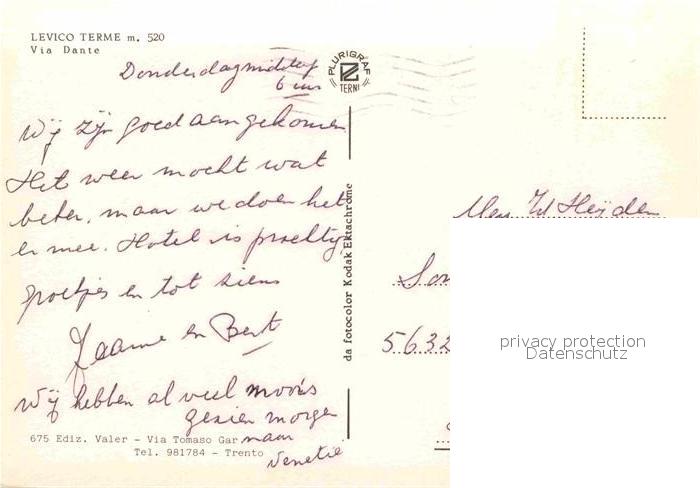 LEVICO TERME m. 520
Via Dante
Donderdagmiddag
6 uur
Wij zijn goed aangekomen.
Het weer mocht wat
beter, maar we doen het
er mee. Hotel is prachtig
groetjes en tot ziens
en Bert
Wij hebben al veel moois
gezien morgen
naar
Venetië
675 Ediz. Valer - Via Tomaso Gar
Tel. 981784 - Trento
PLURIGRAF
TERNI
da fotocolor Kodak Ektachrome
Heyden
5632
privacy protection
Datenschutz